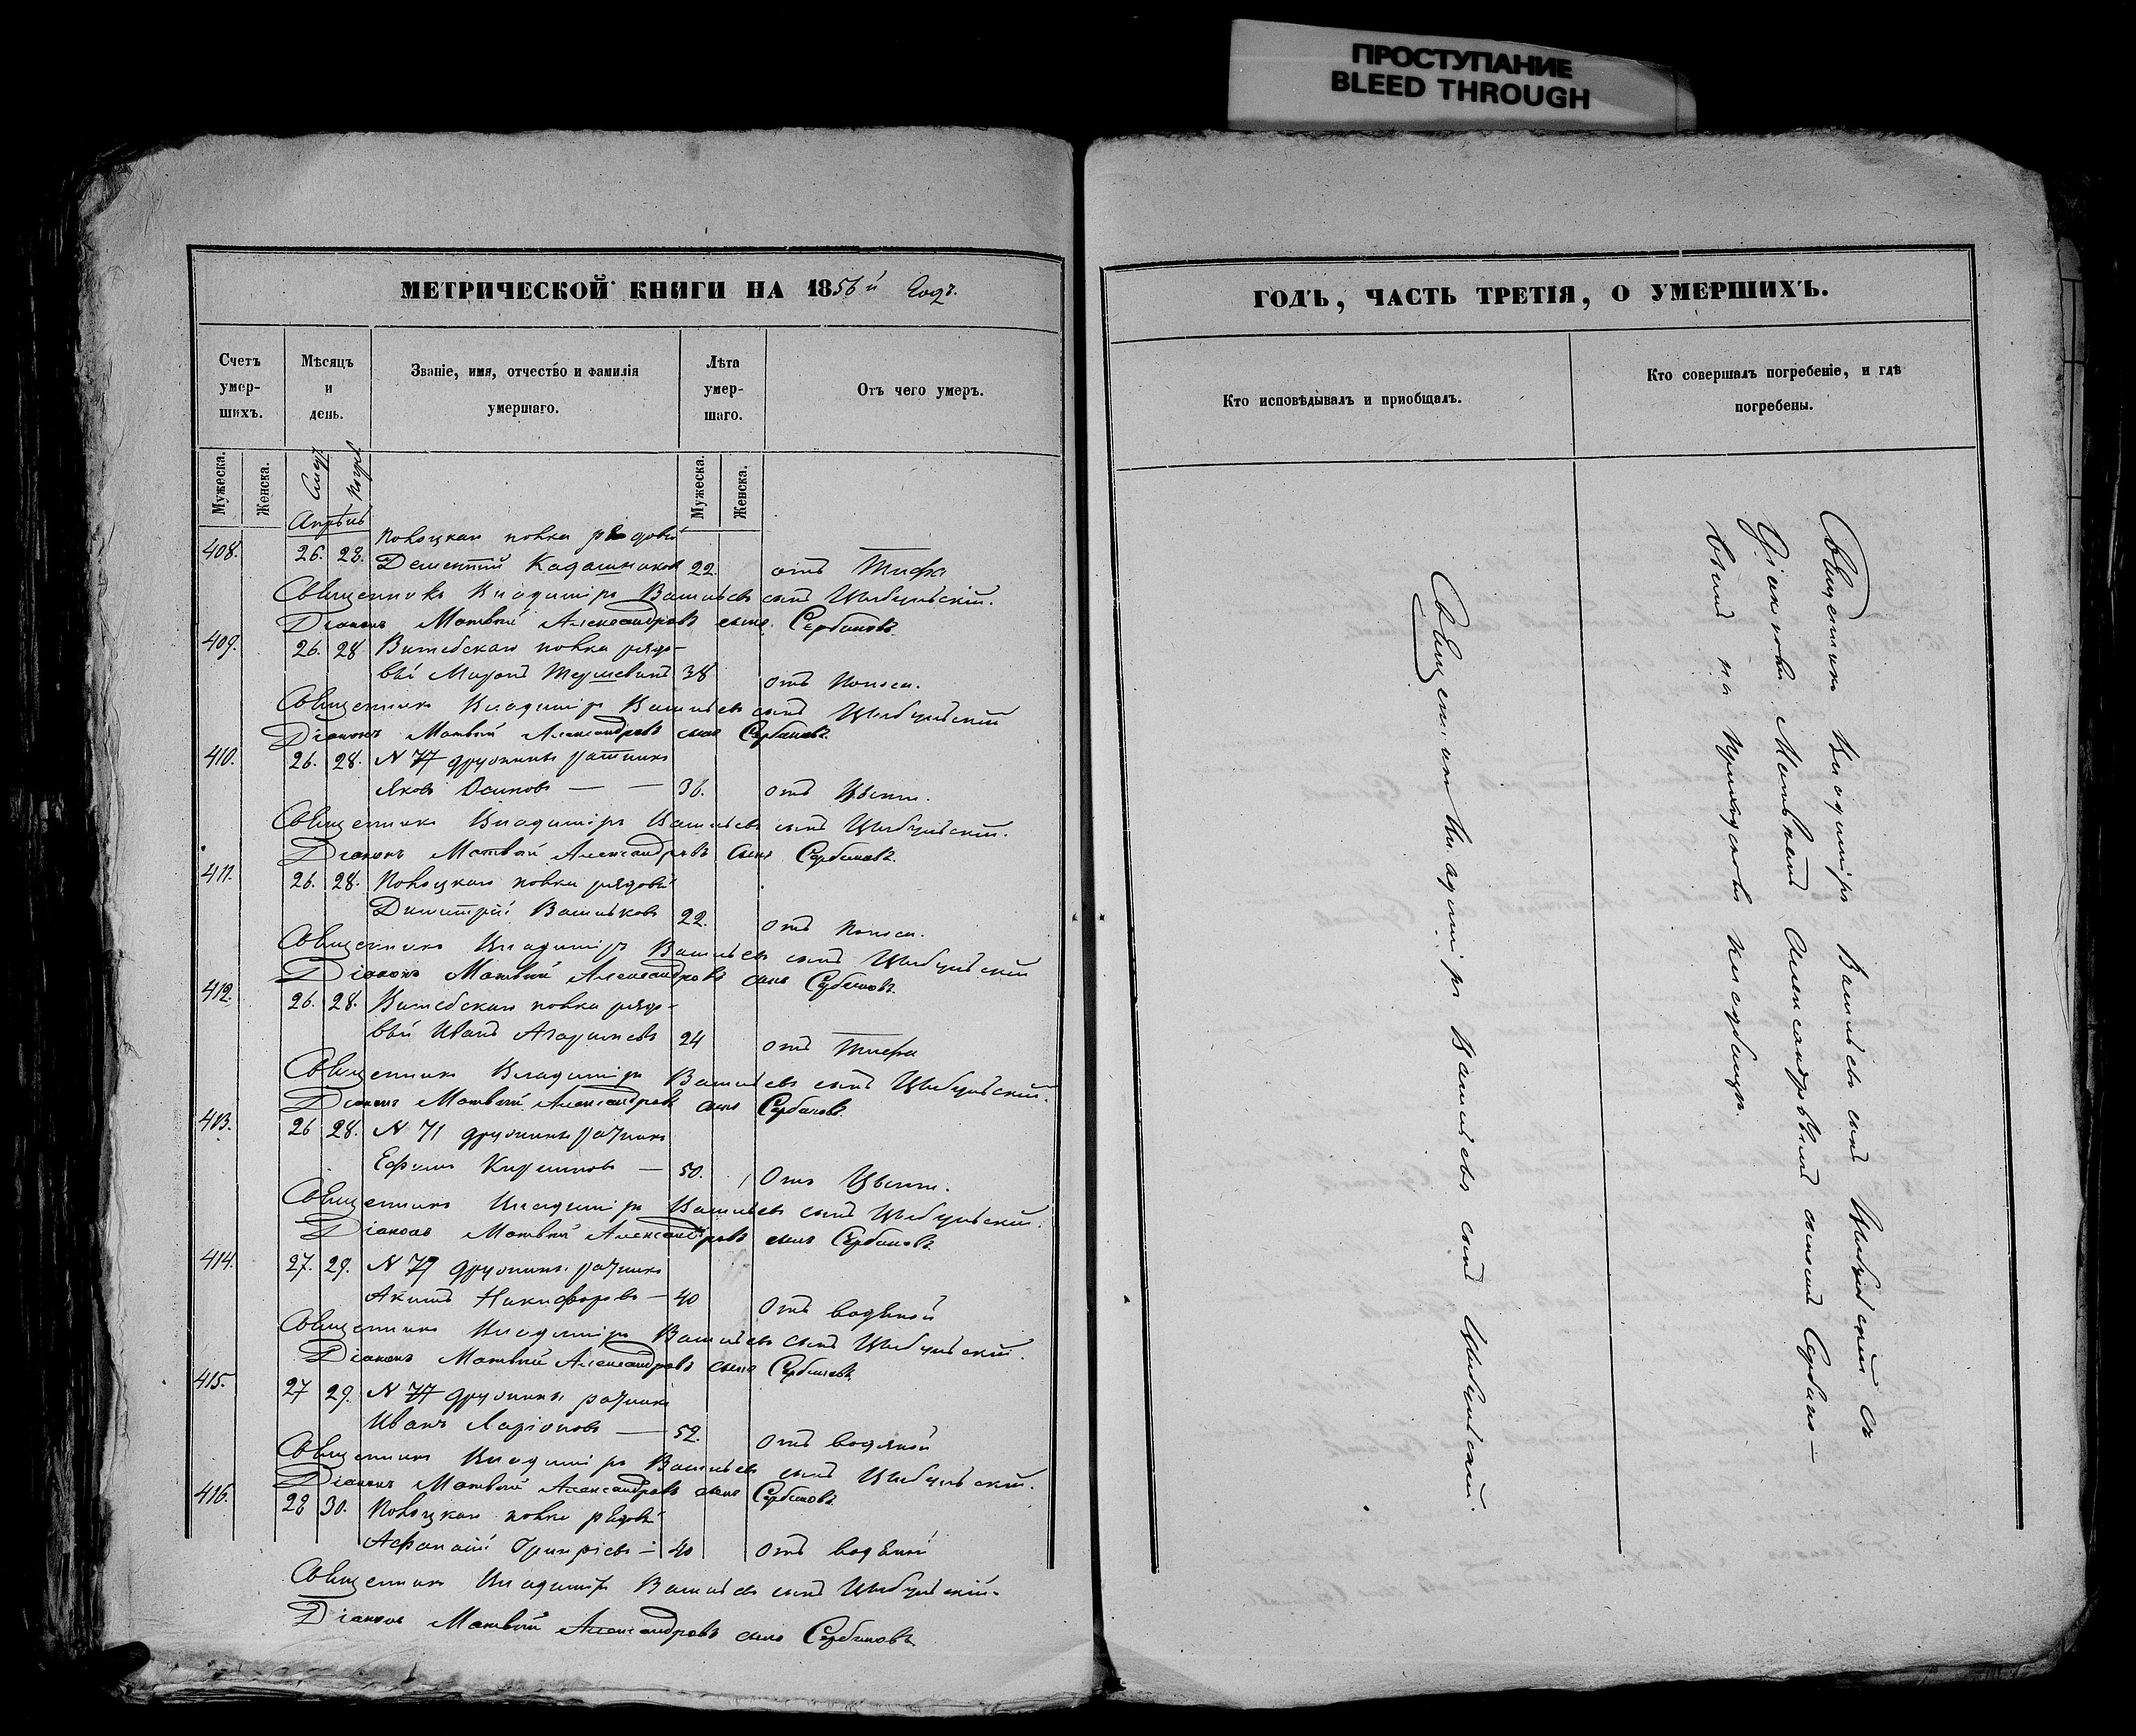 ПРОСТУПАНИЕ
BLEED THROUGH
МЕТРИЧЕСКОЙ КНИГИ НА 1856й Годъ.
Счетъ умер-шихъ.
Мѣсяцъ и день.
Званіе, имя, отчество и фамилія умершаго.
Лѣта умер-шаго.
Отъ чего умеръ.
Мужеска.
Женска.
Мужеска.
Женска.
Апрѣль
408. 26. 28. полка рядовый
Дементій 22. отъ Тифа
Священникъ Владиміръ Васильевъ сынъ Цыбульскій.
Діаконъ Матвѣй Александровъ сынъ Сербиновъ.
409. 26. 28 Витебскаго полка рядо-
вый 38 отъ Поноса.
Священникъ Владиміръ Васильевъ сынъ Цыбульскій
Діаконъ Матвѣй Александровъ сынъ Сербиновъ.
410. 26. 28. N 77 дружины ратникъ
Яковъ Осиповъ — — 36. отъ Цынги.
Священникъ Владиміръ Васильевъ сынъ Цыбульскій.
Діаконъ Матвѣй Александровъ сынъ Сербиновъ.
411. 26. 28. полка рядовый
Димитрій Васильковъ 22. отъ Поноса.
Священникъ Владиміръ Васильевъ сынъ Цыбульскій
Діаконъ Матвѣй Александровъ сынъ Сербиновъ.
412. 26. 28. Витебскаго полка рядо-
вый Иванъ 24 отъ Тифа
Священникъ Владиміръ Васильевъ сынъ Цыбульскій.
Діаконъ Матвѣй Александровъ сынъ Сербиновъ.
413. 26 28. N 71 дружины ратникъ
Ефимъ — 50. Отъ Цынги.
Священникъ Владиміръ Васильевъ сынъ Цыбульскій.
Діаконъ Матвѣй Александровъ сынъ Сербиновъ.
414. 27. 29. дружины ратникъ
Акимъ Никифоровъ — 40 Отъ водяной
Священникъ Владиміръ Васильевъ сынъ Цыбульскій.
Діаконъ Матвѣй Александровъ сынъ Сербиновъ.
415. 27 29. N 77 дружины ратникъ
Иванъ Ларіоновъ — 52. Отъ водяной
Священникъ Владиміръ Васильевъ сынъ Цыбульскій.
Діаконъ Матвѣй Александровъ сынъ Сербиновъ.
416. 28 30. полка рядовый
Афанасій — 40 Отъ водяной
Священникъ Владиміръ Васильевъ сынъ Цыбульскій.
Діаконъ Матвѣй Александровъ сынъ Сербиновъ
ГОДЪ, ЧАСТЬ ТРЕТІЯ, О УМЕРШИХЪ.
Кто исповѣдывалъ и пріобщалъ.
Кто совершалъ погребеніе, и гдѣ
погребены.
Священникъ Владиміръ Васильевъ сынъ Цыбульскій.
Священникъ Владиміръ Васильевъ сынъ Цыбульскій съ
Діакономъ Матвѣемъ Александровымъ сыномъ Сербино-
вымъ на Приходскомъ Кладбищѣ.